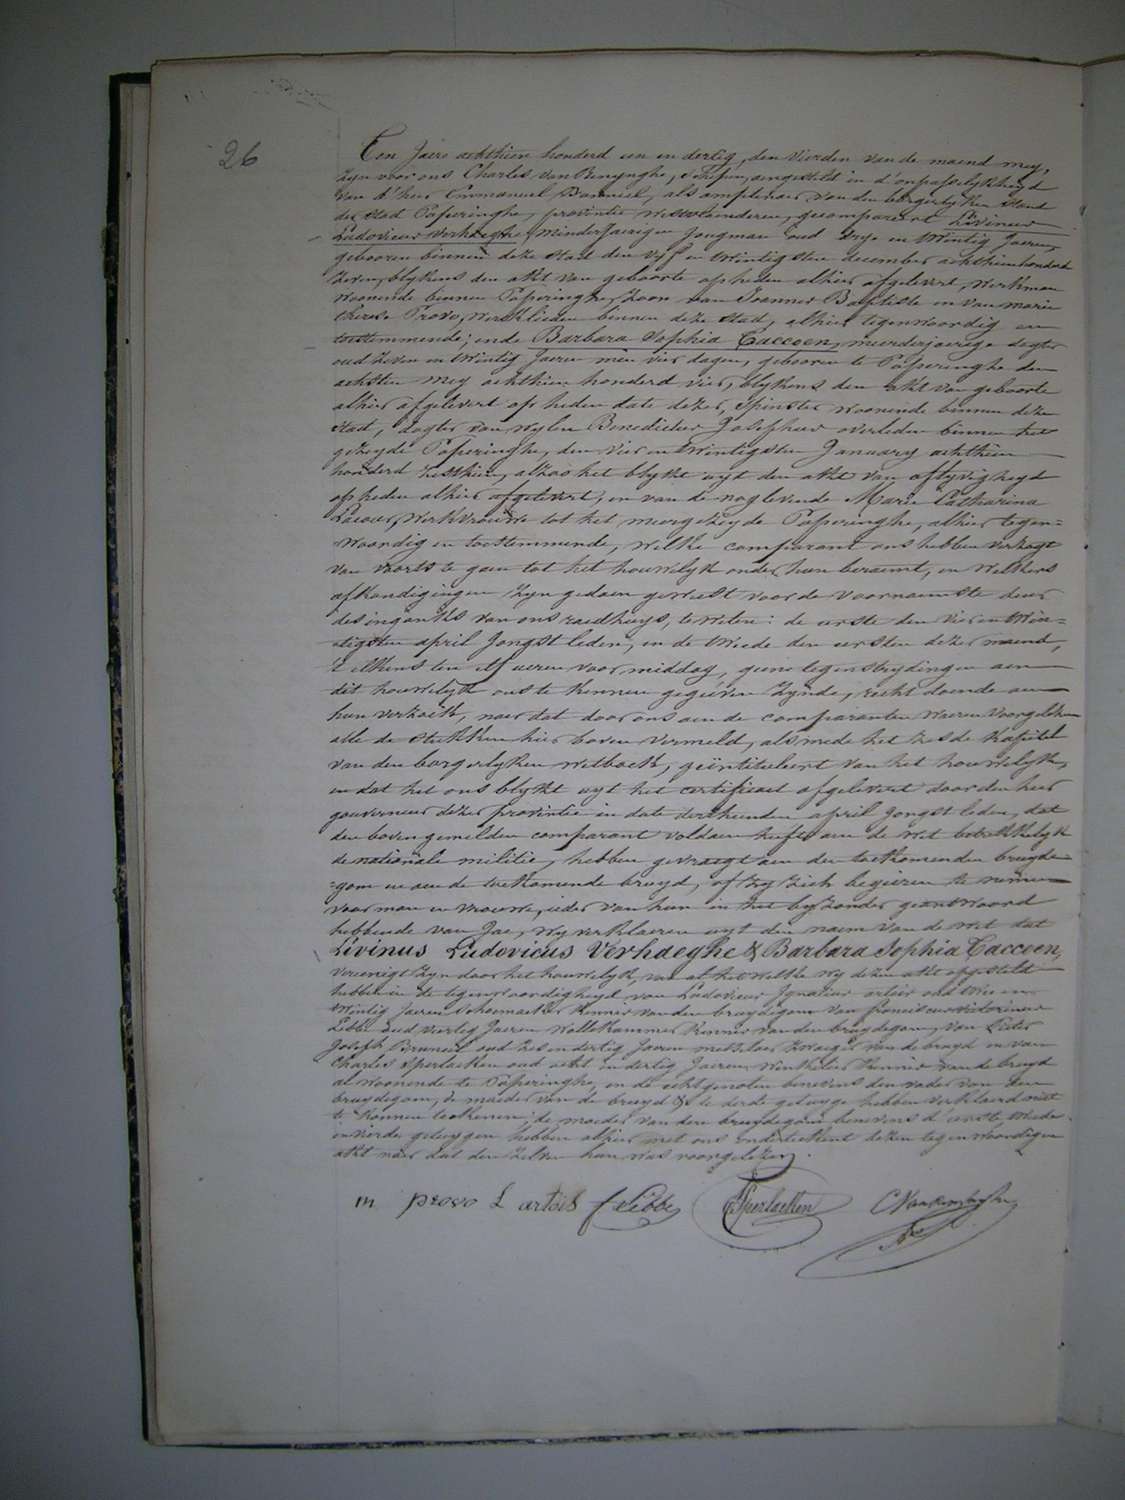 26
Ten Jaere achthien honderd een en dertig, den vierden van de maend mey,
zyn voor ons Charles van Renynghe, schepen, aengesteld in d'onpasselykheyd
van d'heer Emmanuel Bonnuel, als amptenaer van den borgerlyken stand
der stad Poperinghe, provintie westvlaenderen, gecompareert Livinus
Ludovicus Verhaeghe, minderjaerigen jongman oud drye en twintig Jaeren,
gebooren binnen deze stad den vyf en twintigsten december achthienhonderd
zeven, blykens den akt van geboorte op heden alhier afgelevert, werkman
woonende binnen Poperinghe, zoon van Joannes Baptiste en van marie
therese Provo, werklieden binnen deze stad, alhier tegenwoordig en
toestemmende; ende Barbara Sophia Caccoen, meerderjaerige dogter
oud zeven en twintig Jaeren min vier dagen, gebooren te Poperinghe den
achsten mey achthien honderd vier, blykens den akt van geboorte
alhier afgelevert op heden date dezer, spinster woonende binnen deze
stad, dogter van wylen Benedictus Josephus overleden binnen het
gezeyde Poperinghe, den vier en twintigsten January achthien
honderd zesthien, alzoo het blykt uyt den akt van aflyvigheyd
op heden alhier afgelevert, en van de nog levende Marie Catharina
werkvrouwe tot het meergezeyde Poperinghe, alhier tegen=
woordig en toestemmende, welke comparant ons hebben verzogt
van voorts te gaen tot het houwelyk onder hun beraemt, en welkers
afkondigingen zyn gedaen geweest voor de voornaemste deur
des ingank's van ons raedhuys, te weten: de eerste den vier en twin=
tigsten april Jongstleden, en de tweede den eersten dezer maend,
telkens ten elf ueren voormiddag, geene tegenstrydingen aen
dit houwelyk ons te kennen gegeven zynde, recht doende aen
hun verzoek, naer dat door ons aen de comparanten waeren voorgelezen
alle de stukken hier boven vermeld, als mede het zesde kapitel
van den borgerlyken wetboek, geïntituleert van het houwelyk,
en dat het ons blykt uyt het certificaet afgelevert door den heer
gouverneur dezer provintie in date derthienden april Jongstleden, dat
den bovengemelden comparant voldaen heeft aen de wet betrekkelyk
de nationale militie, hebben gevraegt aen den toekomenden bruyde=
=gom en aen de toekomende bruyd, of zy zich begeeren te nemen
voor man en vrouwe, ieder van hun in het byzonder geantwoord
hebbende van Jae, wy verklaeren uyt den naem van de wet dat
Livinus Ludovicus Verhaeghe & Barbara Sophia Caccoen,
vereenigt zyn door het houwelyk, van al het welke wy dezen akt opgesteld
hebben in de tegenwoordigheyd van Ludovicus Ignatius artois oud twee en
twintig Jaeren schoemaeker kenner van den bruydegom van franciscus victorinus
Libbe oud veertig Jaeren wollekammer kenner van den bruydegom, van Pieter
Joseph Bruneel oud zes en dertig Jaeren metselaer zwaeger van de bruyd en van
Charles Sperlaecken oud acht en dertig Jaeren, winkelier kenner van de bruyd
al woonende te Poperinghe, en de echtgenoten benevens den vader van den
bruydegom, de moeder van de bruyd & de derde getuyge hebben verklaerd niet
te konnen teekenen; de moeder van den bruydegom benevens d'eerste tweede
en vierde getuygen hebben alhier met ons onderteekent dezen tegenwoordigen
akt naer dat den zelven hun was voorgelezen.
m provo L artois f Libbe C Sperlaecken C Van Renynghe